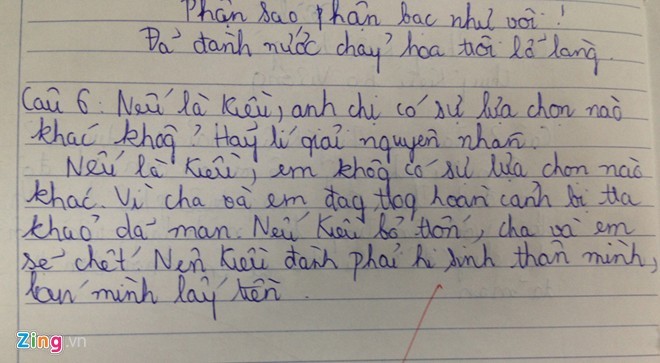 Phận sao phận bạc như vôi!
Đã đành nước chảy hoa trôi lỡ làng.
Câu 6: Nếu là Kiều, anh chị có sự lựa chọn nào
khác khôg? Hãy lí giải nguyên nhân.
Nếu là Kiều, em khôg có sự lựa chọn nào
khác. Vì cha và em đag trog hoàn cảnh bị tra
khảo dã man. Nếu Kiều bỏ trốn, cha và em
sẽ chết. Nên Kiều đành phải hi sinh thân mình,
bán mình lấy tiền.
Zing.vn